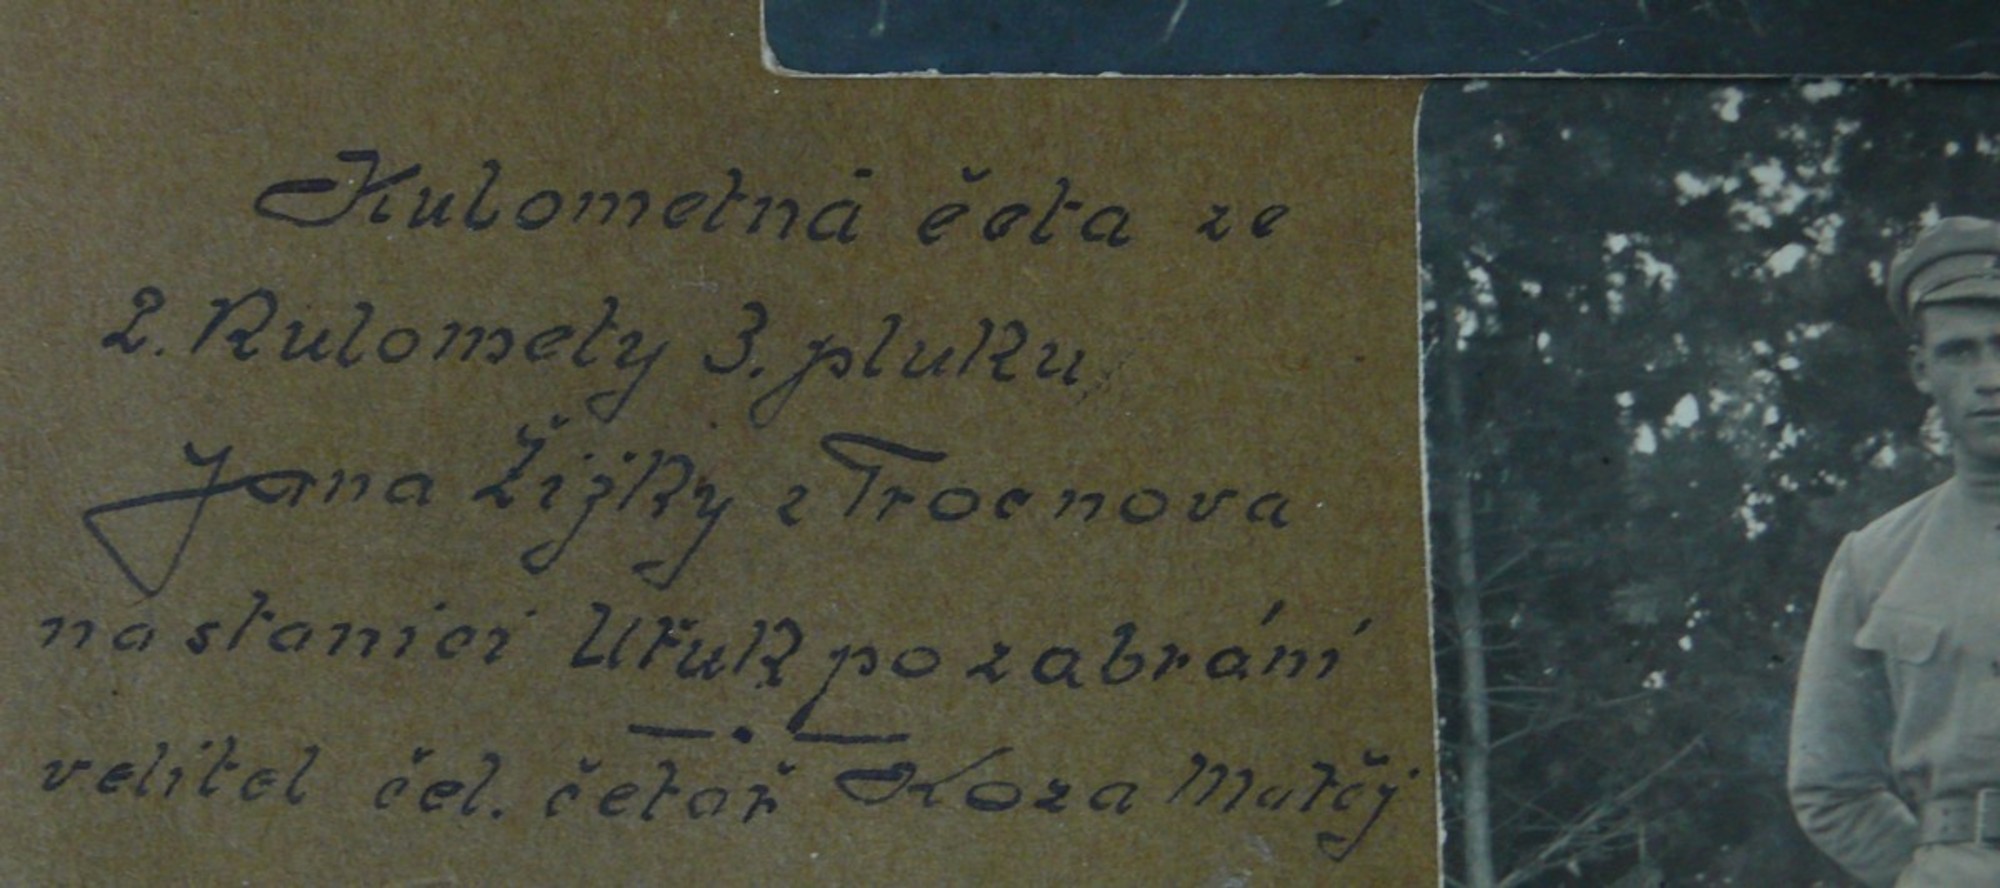 Kulometná četa ze
2. kulomety 3. pluku,
Jana Žižky z Trocnova
na stanici Utuk po zabrání
velitel čel. četař Koza Matěj